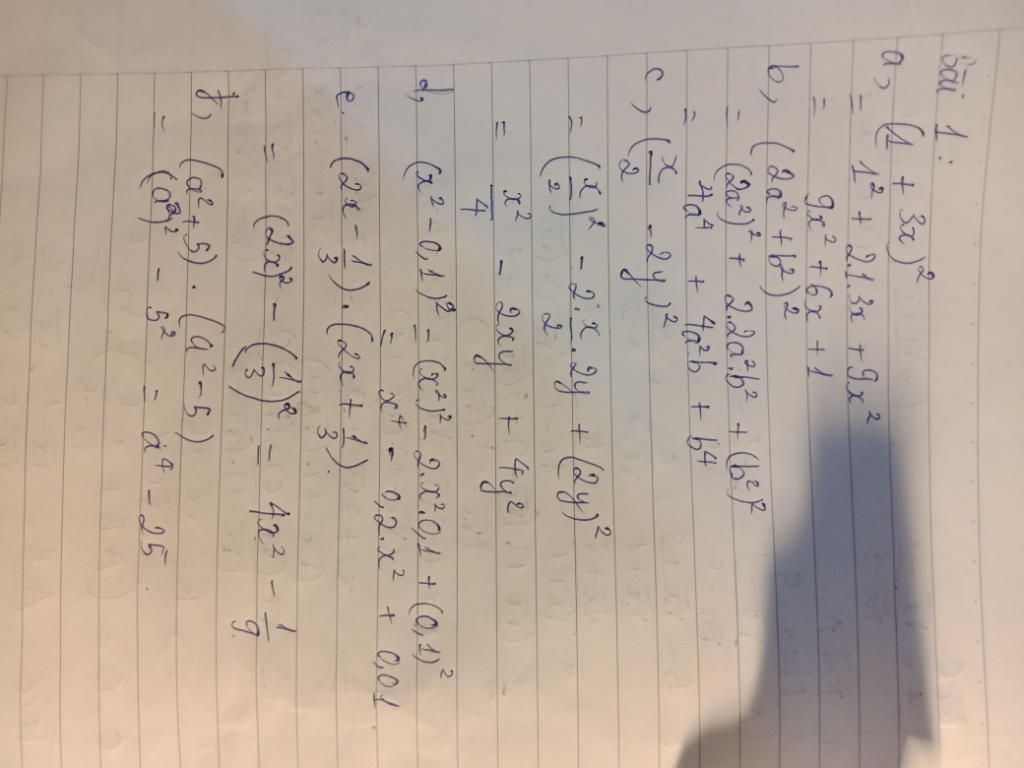 Bài 1:
a, (1 + 3x)²
= 1² + 2.1.3x + 9x²
= 9x² + 6x + 1
b, (2a² + b²)²
= (2a²)² + 2.2a².b² + (b²)²
= 4a⁴ + 4a²b + b⁴
c, (x/2 - 2y)²
= (x/2)² - 2.x/2.2y + (2y)²
= x²/4 - 2xy + 4y²
d, (x² - 0,1)² = (x²)² - 2.x².0,1 + (0,1)²
= x⁴ - 0,2.x² + 0,01
e. (2x - 1/3).(2x + 1/3)
= (2x)² - (1/3)² = 4x² - 1/9
f, (a² + 5).(a² - 5)
= (a²)² - 5² = a⁴ - 25.